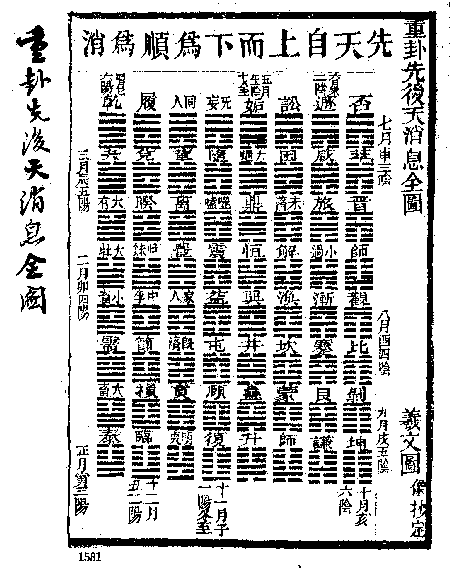 重卦先後天消息全圖
羲文圖
先天自上而下爲順爲消
七月申三陰
八月酉四陰
九月戌五陰
否 萃 晉 觀 比 剝 坤
十月亥六陰
遯 咸 旅 小過 漸 蹇 艮 謙
訟 困 未濟 解 渙 坎 蒙 師
姤 大過 鼎 恒 巽 井 蠱 升
无妄 隨 噬嗑 震 益 屯 頤 復
十一月子
一陽冬至
同人 革 離 豐 家人 既濟 賁 明夷
履 兌 睽 歸妹 中孚 節 損 臨
十二月丑二陽
乾 夬 大有 大壯 小畜 需 大畜 泰
三月辰五陽
二月卯四陽
正月寅三陽
重卦先後天消息全圖
1581